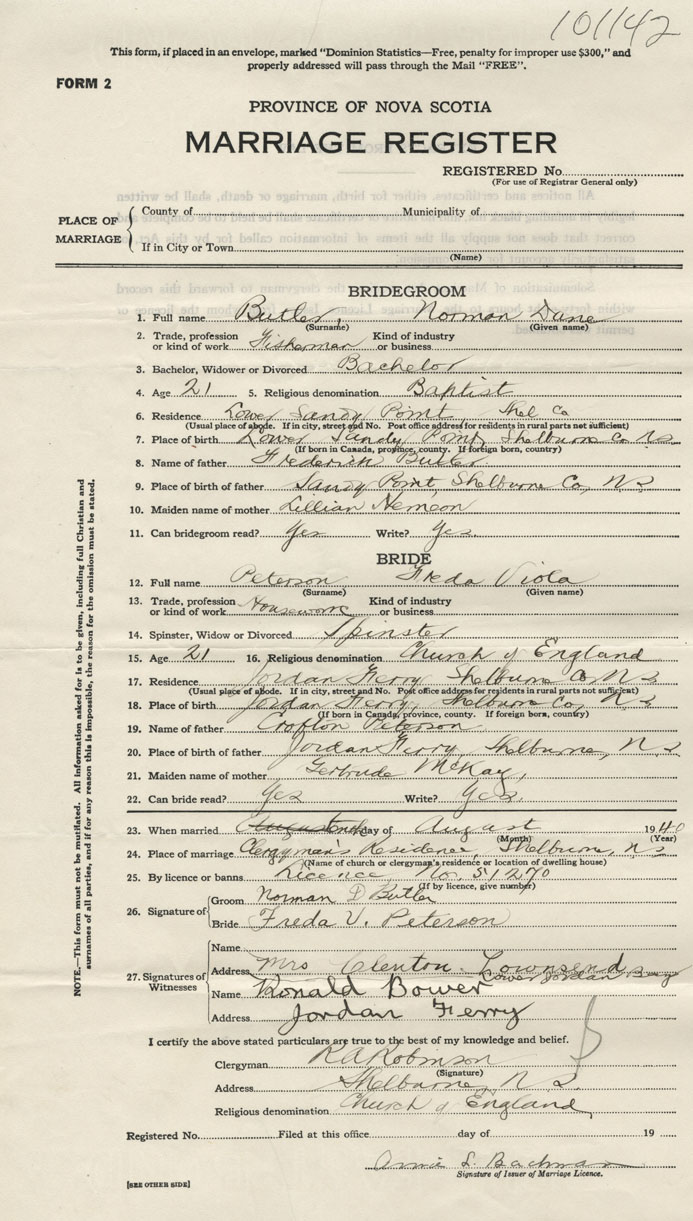 101142
This form, if placed in an envelope, marked "Dominion Statistics—Free, penalty for improper use $300," and
properly addressed will pass through the Mail "FREE".
FORM 2
PROVINCE OF NOVA SCOTIA
MARRIAGE REGISTER
REGISTERED No.
(For use of Registrar General only)
PLACE OF MARRIAGE
County of Municipality of
If in City or Town
(Name)
BRIDEGROOM
1. Full name Butler, Norman Dane
(Surname) (Given name)
2. Trade, profession or kind of work Fisherman Kind of industry or business
3. Bachelor, Widower or Divorced Bachelor
4. Age 21 5. Religious denomination Baptist
6. Residence Lower Sandy Point Shel Co
(Usual place of abode. If in city, street and No. Post office address for residents in rural parts not sufficient)
7. Place of birth Lower Sandy Point, Shelburne Co NS
(If born in Canada, province, county. If foreign born, country)
8. Name of father Frederick Butler
9. Place of birth of father Sandy Point, Shelburne Co, N S
10. Maiden name of mother Lillian
11. Can bridegroom read? Yes Write? Yes.
BRIDE
12. Full name Peterson Freda Viola
(Surname) (Given name)
13. Trade, profession or kind of work Housework Kind of industry or business
14. Spinster, Widow or Divorced Spinster
15. Age 21 16. Religious denomination Church of England
17. Residence Jordan Ferry Shelburne Co, N S
(Usual place of abode. If in city, street and No. Post office address for residents in rural parts not sufficient)
18. Place of birth Jordan Ferry, Shelburne Co, N S
(If born in Canada, province, county. If foreign born, country)
19. Name of father Crofton Peterson
20. Place of birth of father Jordan Ferry, Shelburne, N S
21. Maiden name of mother Gertrude McKay,
22. Can bride read? Yes Write? Yes.
23. When married day of August 1940
(Month) (Year)
24. Place of marriage Clergyman's Residence, Shelburne, N S
(Name of church or clergyman's residence or location of dwelling house)
25. By licence or banns Licence No. 51270
(If by licence, give number)
26. Signature of
Groom Norman D Butler
Bride Freda V. Peterson
27. Signatures of Witnesses
Name
Address Mrs Clenton Townsend
Lower Jordan Bay
Name Ronald Bower
Address Jordan Ferry
I certify the above stated particulars are true to the best of my knowledge and belief.
Clergyman R A Robinson
(Signature)
Address Shelburne, N S.
Religious denomination Church of England
Registered No. Filed at this office day of 19
Signature of Issuer of Marriage Licence.
[SEE OTHER SIDE]
NOTE.—This form must not be mutilated. All information asked for is to be given, including full Christian and
surnames of all parties, and if for any reason this is impossible, the reason for the omission must be stated.